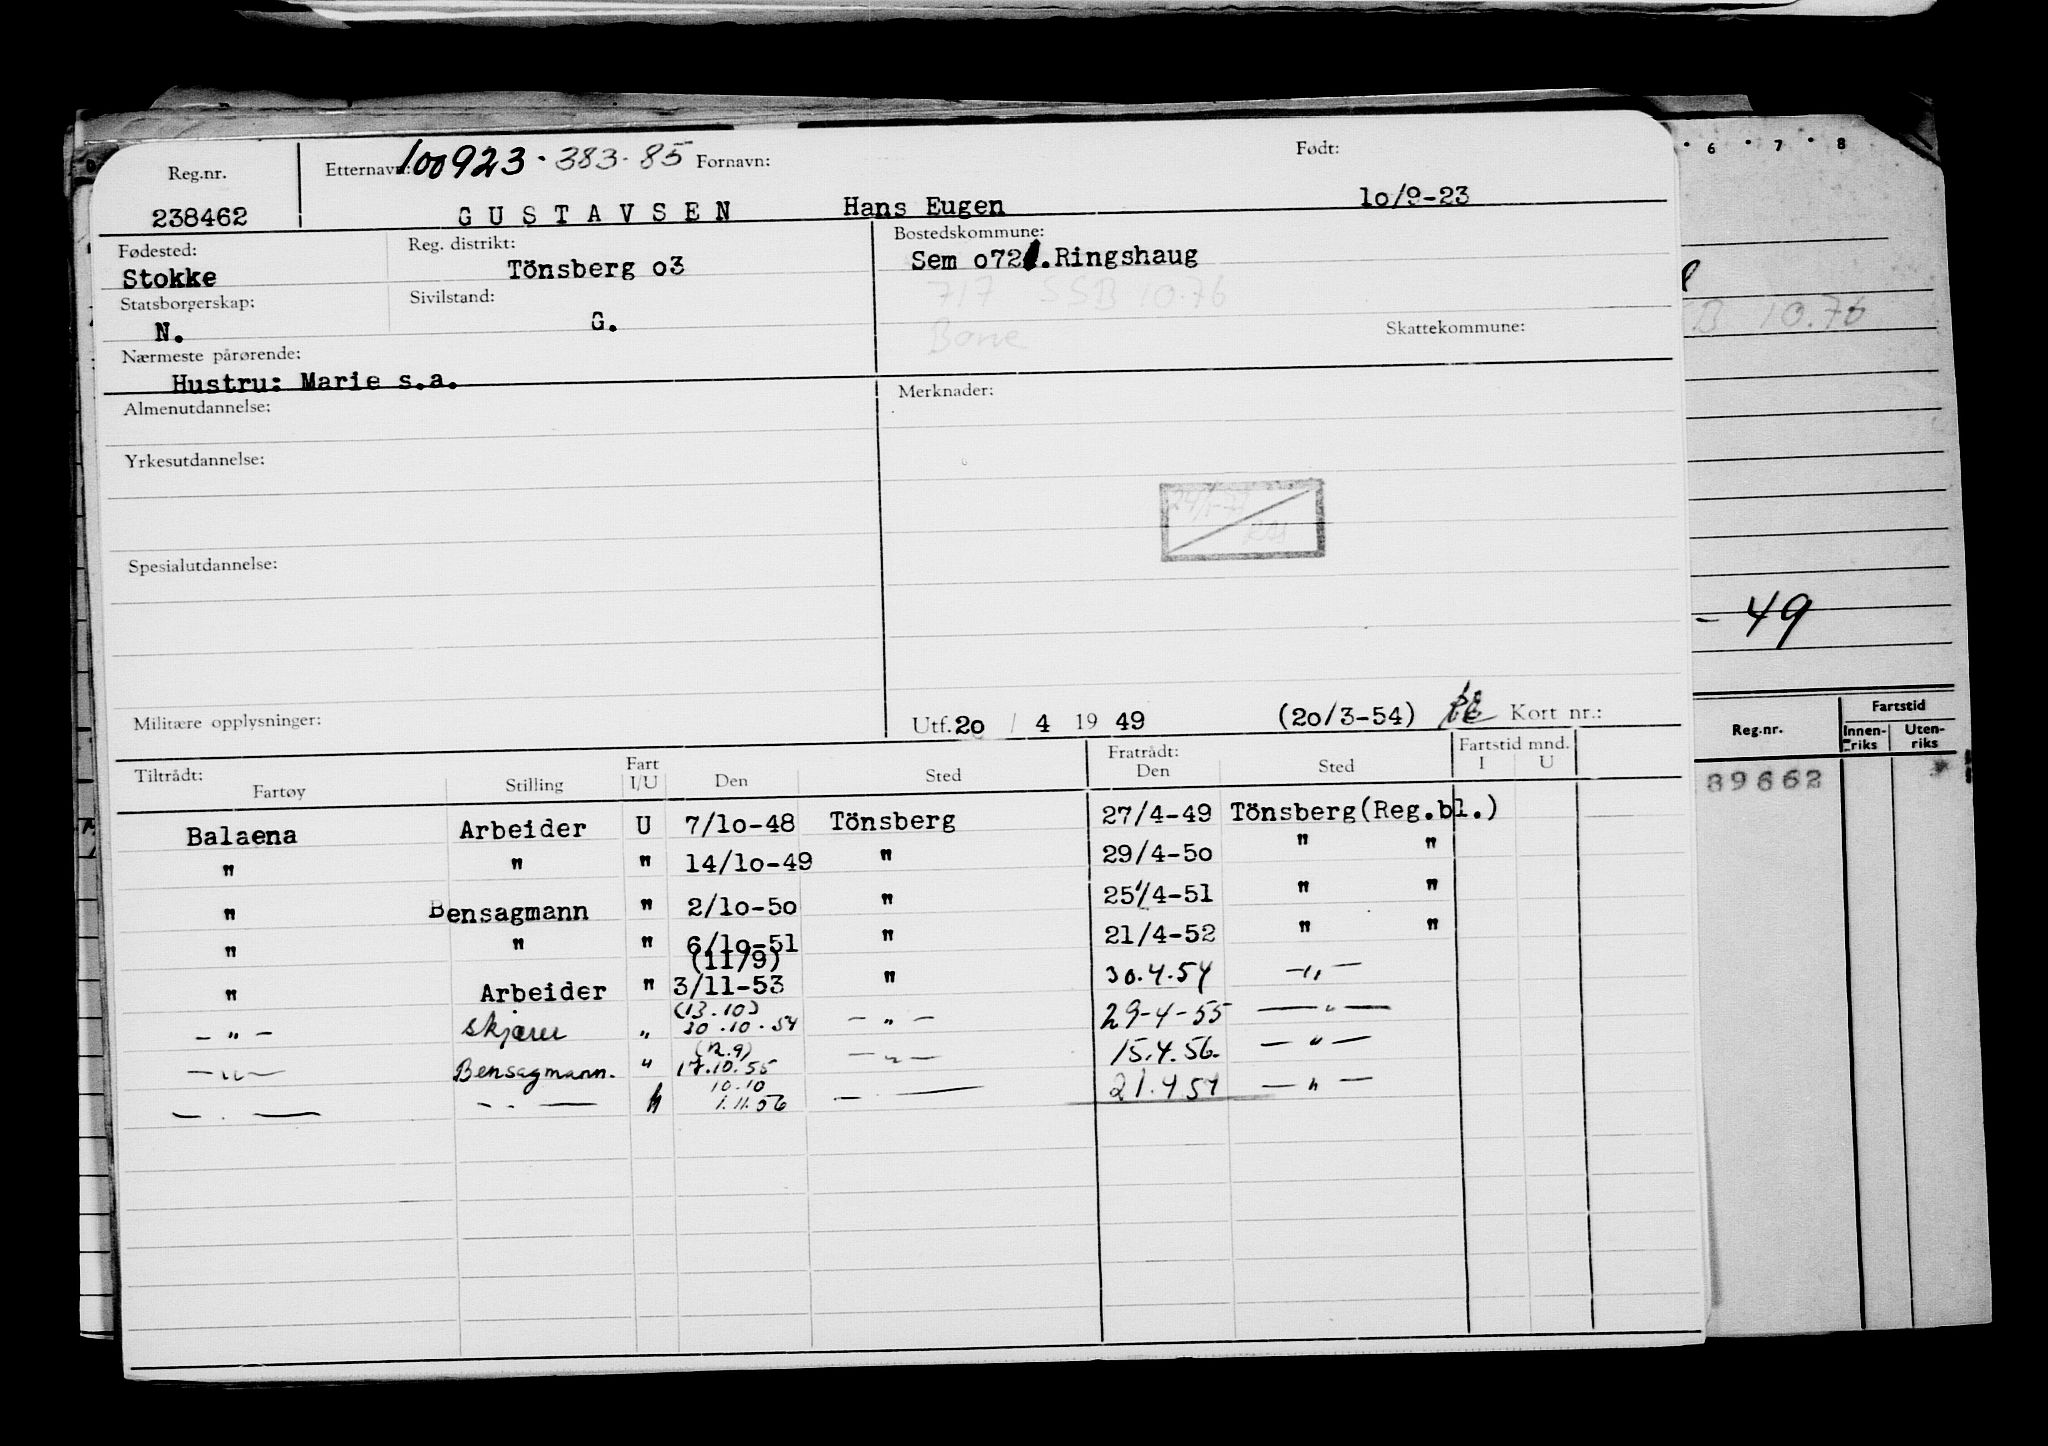 Reg.nr. Etternavn: 100923 · 383 · 85 Fornavn: Født:
238462 GUSTAVSEN Hans Eugen 1o/9-23
Fødested: Reg. distrikt: Bostedskommune:
Stokke Tönsberg o3 Sem o721.Ringshaug
Statsborgerskap: Sivilstand: 717 SSB 10.76
N. G. Borre Skattekommune:
Nærmeste pårørende:
Hustru: Marie s.a.
Almenutdannelse: Merknader:
Yrkesutdannelse:
Spesialutdannelse:
Militære opplysninger: Utf. 2o / 4 19 49 (2o/3-54) Kort nr.:
Tiltrådt: Fart Fratrådt: Fartstid mnd.
Fartøy Stilling I/U Den Sted Den Sted I U
Balaena Arbeider U 7/1o-48 Tönsberg 27/4-49 Tönsberg(Reg.bl.)
" " " 14/1o-49 " 29/4-5o " "
" Bensagmann " 2/1o-5o " 25/4-51 " "
" " " 6/1o-51 " 21/4-52 " "
(11/9)
" Arbeider " 3/11-53 " 30.4.54 -"-
(13.10)
-"- Skjærer " 30.10.54 -"- 29-4-55 -"-
(12.9)
-"- Bensagmann. " 17.10.55 -"- 15.4.56. -"-
10.10
-"- -"- " 1.11.56 -"- 21.4 57 -"-
6 7 8
10.76
- 49
Reg.nr. Fartstid
Innen-riks Uten-riks
39662